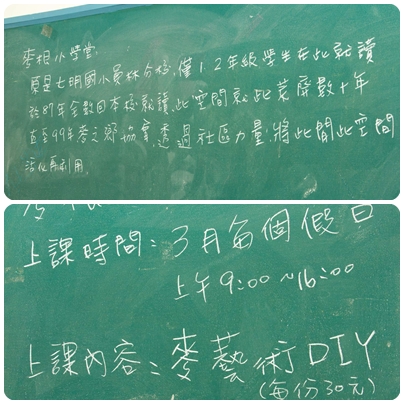 麥根小學堂:
原是七明國小員林分校,僅1.2年級學生在此就讀
於87年全數回本校就讀,此空間就此荒廢數十年
直至99年麥之鄉協會,透過社區力量,將此閒此空間
活化再利用.
上課時間:3月每個假日
上午9:00~16:00
上課內容:麥藝術DIY
(每份30元)